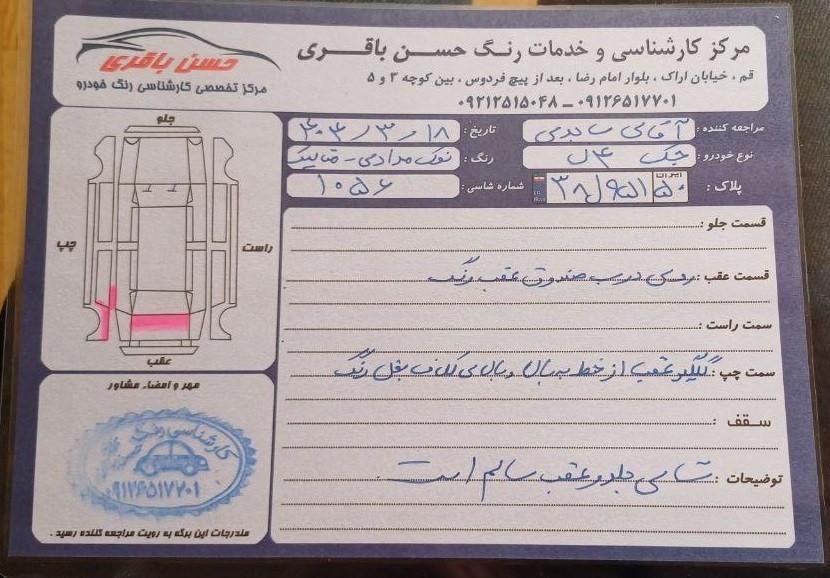 حسن باقری
مرکز تخصصی کارشناسی رنگ خودرو
مرکز کارشناسی و خدمات رنگ حسن باقری
قم ، خیابان اراک ، بلوار امام رضا ، بعد از پیچ فردوس ، بین کوچه ۳ و ۵
۰۹۲۱۲۵۱۵۰۴۸ ـ ۰۹۱۲۶۵۱۷۷۰۱
مراجعه کننده : آقای ساجدی
تاریخ : ۴۰۳/۳/۱۸
نوع خودرو : جک
رنگ : نوک مدادی - متالیک
پلاک :
ایران
شماره شاسی : ۱۰۵۶
جلو
چپ
راست
عقب
قسمت جلو :
قسمت عقب : روی درب صندوق عقب رنگ
سمت راست :
سمت چپ : گلگیر عقب از خط به بالا و بالای بغل رنگ
سقف :
توضیحات : شاسی جلو و عقب سالم است
مهر و امضاء مشاور
کارشناسی رنگ
۰۹۱۲۶۵۱۷۷۰۱
مندرجات این برگه به رویت مراجعه کننده رسید .